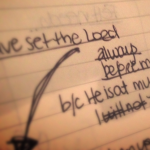 ve set the Lord
always
before m
b/c He is at m
I will not